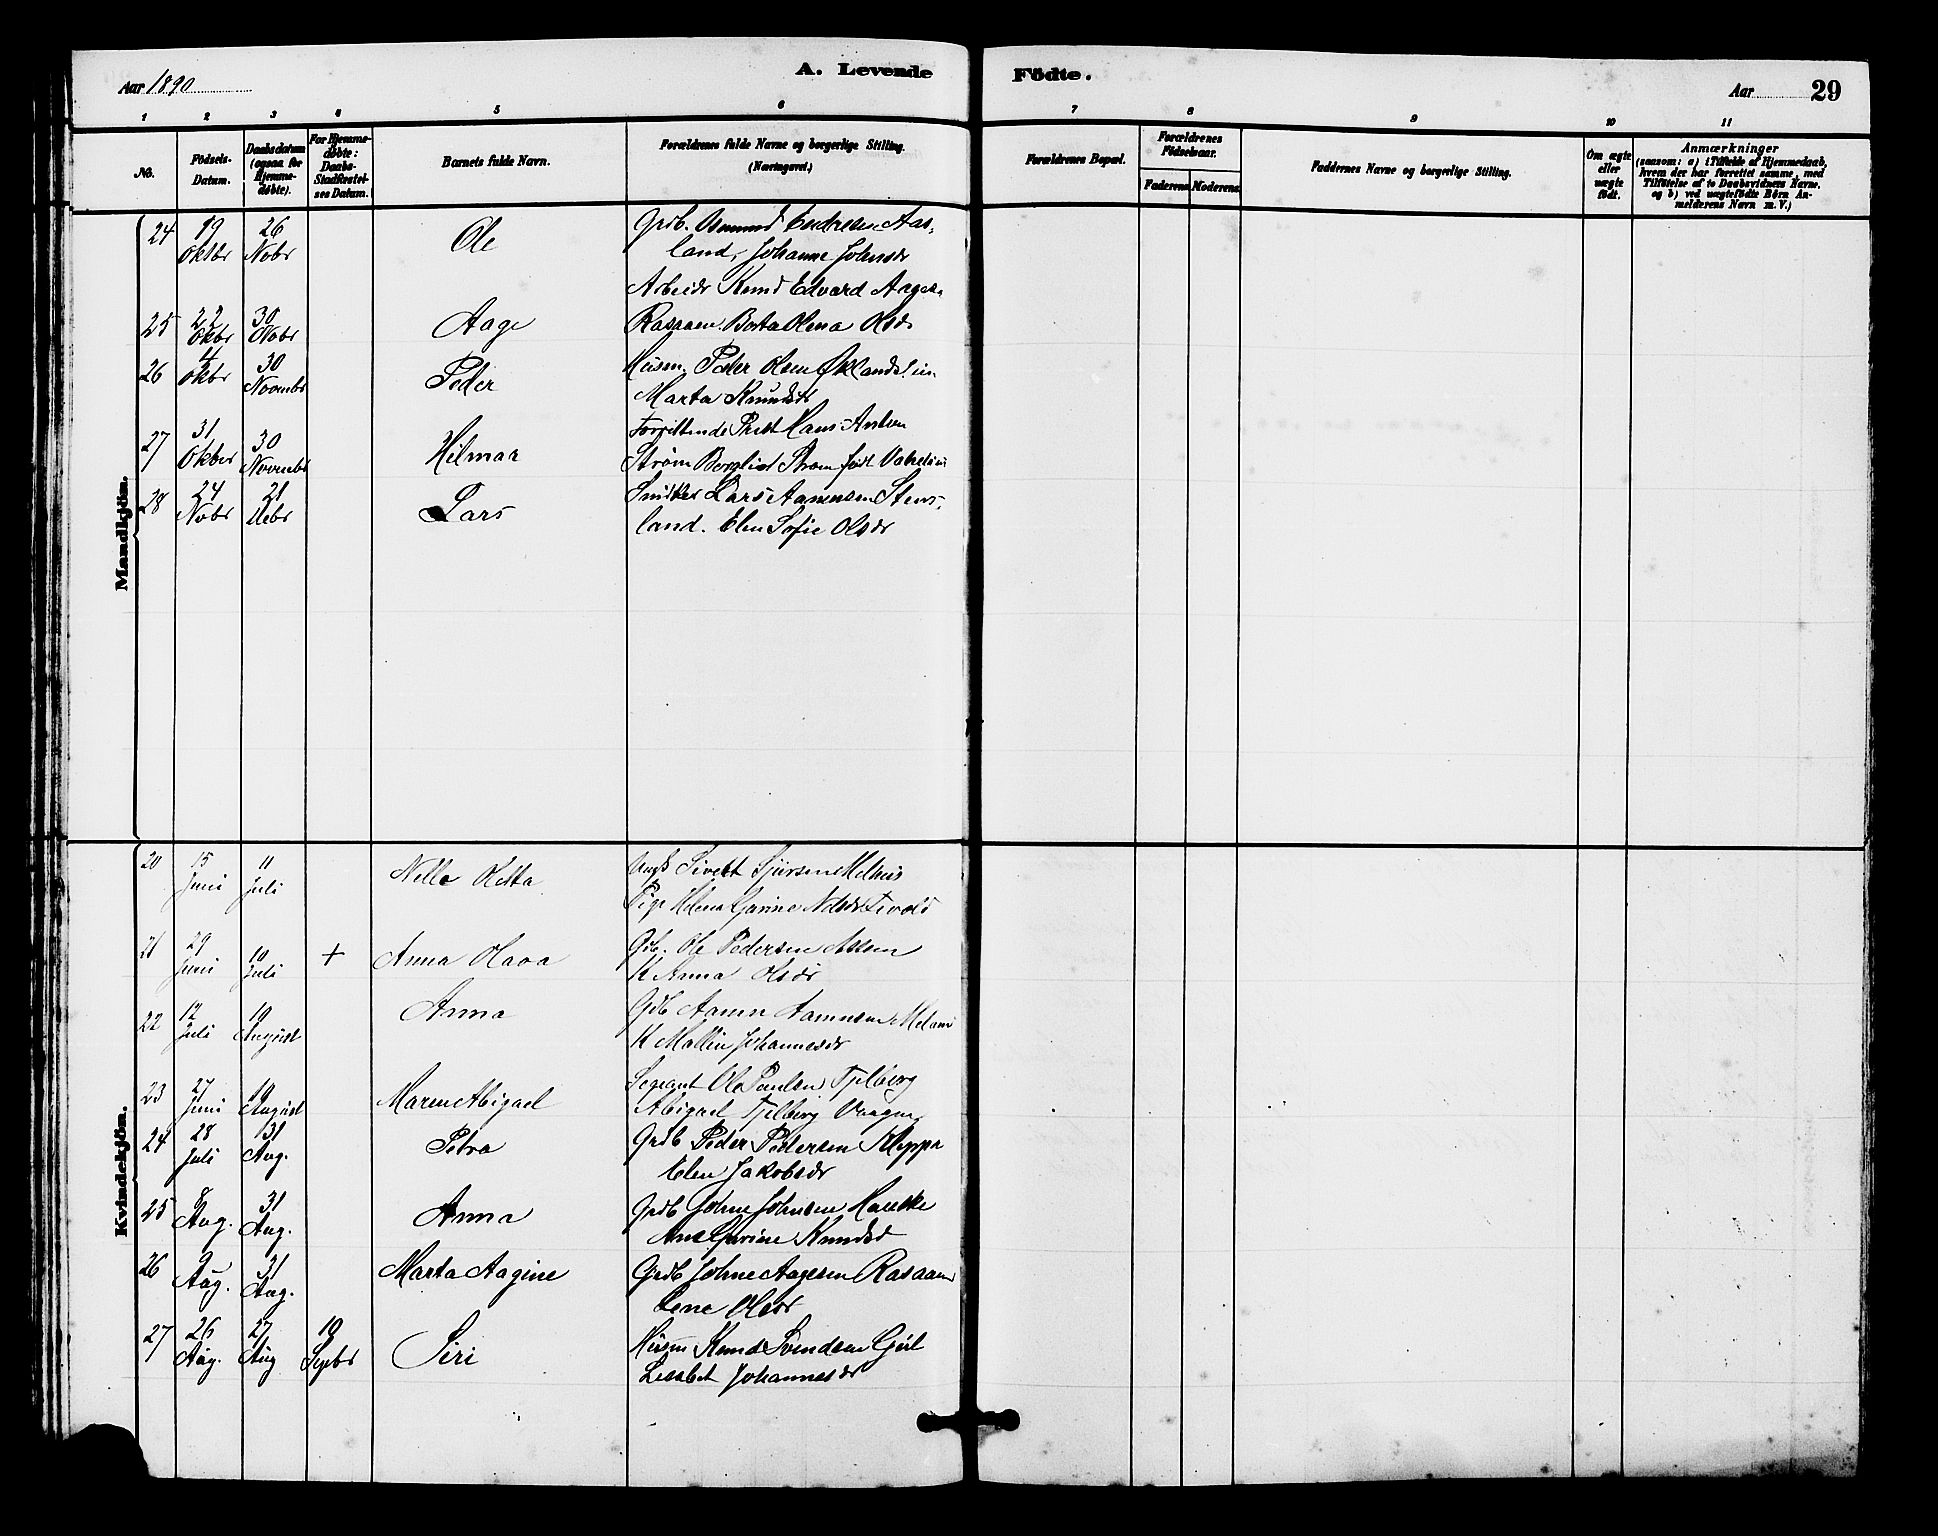 Aar 1890
A. Levende Födte.
Aar 29
1 2 3 4 5 6 7 8 9 10 11
No.
Födsels-Datum.
Daabsdatum (ogsaa for Hjemme-døbte).
For Hjemme-døbte: Daabs-Stadfæstel-ses Datum.
Barnets fulde Navn.
Forældrenes fulde Navne og borgerlige Stilling. (Næringsvei.)
Forældrenes Bopæl.
Forældrenes Födselsaar.
Faderens Moderens
Faddernes Navne og borgerlige Stilling.
Om ægte eller uægte født.
Anmærkninger
(saasom: a) i Tilfælde af Hjemmedaab, hvem der har forrettet samme, med Tilføielse af to Daabsvidners Navne, og b) ved uægtefödte Börn An-melderens Navn m. V.)
Mandkjön.
24 19 Oktbr 26 Nobr Ole Grdb. Osmund Endresen Aas-
land, Johanne Johnsdr
Arbeidr Knud Edvard Aages.
25 22 Okbr 30 Nobr Aage Rasaaen. Berta Olena Olsdr
26 4 Okbr 30 Novembr Peder Husm. Peder Olsen Øklandslien
Marta Knudsdr
27 31 Okber 30 Novembr Hilmar Forrettende Prest Hans Antson
Strøm Borglid Strøm født
28 24 Nobr 21 Debr Lars Snidker Lars Aamnsen Stens-
land. Elen Sofie Olsdr
Kvindekjön.
20 15 Juni 11 Juli Nille Oletta Ungk Sivert Sjursen Melhus
Pige Helena Gurine
21 29 Juni 10 Juli + Anna Olava Grdb. Ole Pedersen
K Anna Olsdr
22 12 Juli 10 August Anna Grdb Aamn Aamnsen
K Mallin Johannesdr
23 27 Juni 10 August Maren Abigael Sergeant Ole Paulsen Fjelberg
Abigael Fjelberg Vaagen
24 28 Juli 31 Aug. Petra Grdb Peder Pedersen Kleppe
Elen Jakobsdr
25 8 Aug. 31 Aug. Anna Grdb Johne Johnsen Hauske
Ane Gurine Knudsd
26 9 Aug. 31 Aug. Marta Aagine Grdb Johne Aagesen Rasaaen
Lene Olsdr
27 26 Aug. 27 Aug 10 Sepbr Siri Husm Knud Svendsen
Lisabet Johannesdr